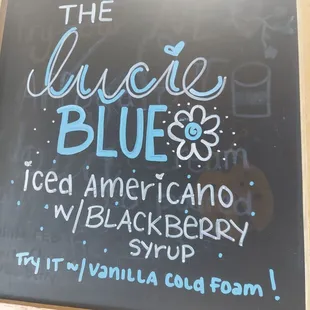 THE
lucie
BLUE
iced AMERICANO
w/BLACKBERRY
SYRUP
TRY IT w/VANILLA COLD FOAM!